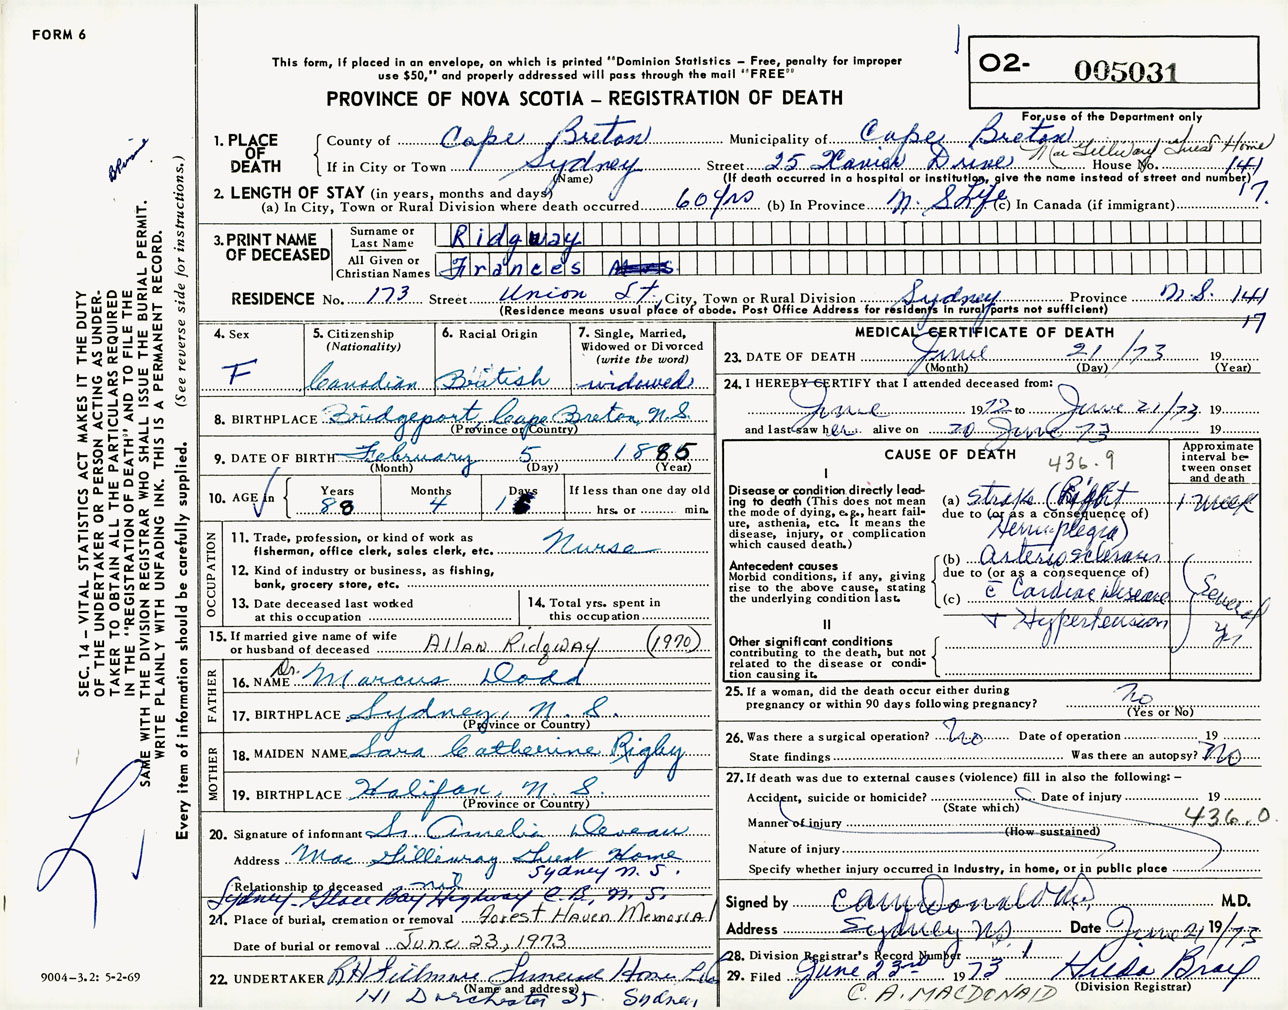 FORM 6
This form, if placed in an envelope, on which is printed "Dominion Statistics – Free, penalty for improper
use $50," and properly addressed will pass through the mail "FREE"
PROVINCE OF NOVA SCOTIA – REGISTRATION OF DEATH
O2- 005031
For use of the Department only
1. PLACE OF DEATH
County of Cape Breton Municipality of Cape Breton
Mac Gillivary Guest Home
If in City or Town Sydney Street 25 Xavier Drive House No. 141
(Name) (If death occurred in a hospital or institution, give the name instead of street and number)
17.
2. LENGTH OF STAY (in years, months and days)
(a) In City, Town or Rural Division where death occurred 60 yrs (b) In Province N. S. Life (c) In Canada (if immigrant)
3. PRINT NAME OF DECEASED
Surname or Last Name Ridgway
All Given or Christian Names Frances
RESIDENCE No. 173 Street Union St. City, Town or Rural Division Sydney Province N.S. 141
(Residence means usual place of abode. Post Office Address for residents in rural parts not sufficient)
17
4. Sex F
5. Citizenship (Nationality) Canadian
6. Racial Origin British
7. Single, Married, Widowed or Divorced (write the word) widowed
8. BIRTHPLACE Bridgeport, Cape Breton, N.S.
(Province or Country)
9. DATE OF BIRTH February 5 1885
(Month) (Day) (Year)
10. AGE in Years 88 Months 4 Days If less than one day old hrs. or min.
OCCUPATION
11. Trade, profession, or kind of work as fisherman, office clerk, sales clerk, etc. Nurse
12. Kind of industry or business, as fishing, bank, grocery store, etc.
13. Date deceased last worked at this occupation
14. Total yrs. spent in this occupation
15. If married give name of wife or husband of deceased Allan Ridgway (1970)
FATHER
16. NAME Dr. Marcus Dodd
17. BIRTHPLACE Sydney, N. S.
(Province or Country)
MOTHER
18. MAIDEN NAME Sara Catherine Rigby
19. BIRTHPLACE Halifax, N. S.
(Province or Country)
20. Signature of informant Sr. Amelia Deveau
Address Mac Gillivray Guest Home
Sydney N. S.
Relationship to deceased nil
Sydney-Glace Bay Highway C.B. N.S.
21. Place of burial, cremation or removal Forest Haven Memorial
Date of burial or removal June 23, 1973
22. UNDERTAKER R H Fillmore Funeral Home Ltd
(Name and address)
141 Dorchester St. Sydney,
MEDICAL CERTIFICATE OF DEATH
23. DATE OF DEATH June 21 /73 19
(Month) (Day) (Year)
24. I HEREBY CERTIFY that I attended deceased from:
June 1972 to June 21/73 19
and last saw her alive on 20 June 73 19
CAUSE OF DEATH
436.9
Approximate interval between onset and death
I
Disease or condition directly leading to death (This does not mean the mode of dying, e.g., heart failure, asthenia, etc. It means the disease, injury, or complication which caused death.)
(a) Stroke (Right 1 week
due to (or as a consequence of)
Hemiplegia)
Antecedent causes
Morbid conditions, if any, giving rise to the above cause, stating the underlying condition last.
(b) Arteriosclerosis
due to (or as a consequence of)
(c) c̄ Cardiac Disease
+ Hypertension
Several yrs
II
Other significant conditions contributing to the death, but not related to the disease or condition causing it.
25. If a woman, did the death occur either during pregnancy or within 90 days following pregnancy? No
(Yes or No)
26. Was there a surgical operation? No Date of operation 19
State findings Was there an autopsy? No
27. If death was due to external causes (violence) fill in also the following: –
Accident, suicide or homicide? Date of injury 19
(State which)
436.0
Manner of injury
(How sustained)
Nature of injury
Specify whether injury occurred in industry, in home, or in public place
Signed by C A MacDonald M.D.
Address Sydney NS Date June 21 19/73
28. Division Registrar's Record Number
29. Filed June 23rd 1973 Hilda Bray
(Division Registrar)
C. A. MACDONALD
SEC. 14 – VITAL STATISTICS ACT MAKES IT THE DUTY
OF THE UNDERTAKER OR PERSON ACTING AS UNDER-
TAKER TO OBTAIN ALL THE PARTICULARS REQUIRED
IN THE "REGISTRATION OF DEATH" AND TO FILE THE
SAME WITH THE DIVISION REGISTRAR WHO SHALL ISSUE THE BURIAL PERMIT.
WRITE PLAINLY WITH UNFADING INK. THIS IS A PERMANENT RECORD.
Every item of information should be carefully supplied. (See reverse side for instructions.)
9004–3.2: 5-2-69